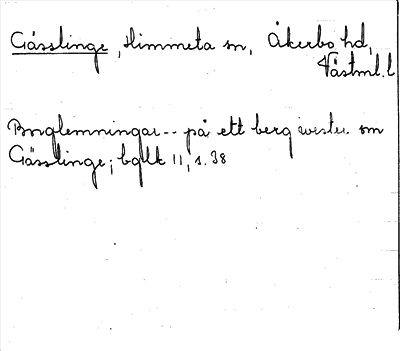 Gässlinge, Himmeta sn, Åkerbo hd,
Västml. l
Borglemningar -- på ett berg wester om
Gässlinge; bqlk 11, s. 38